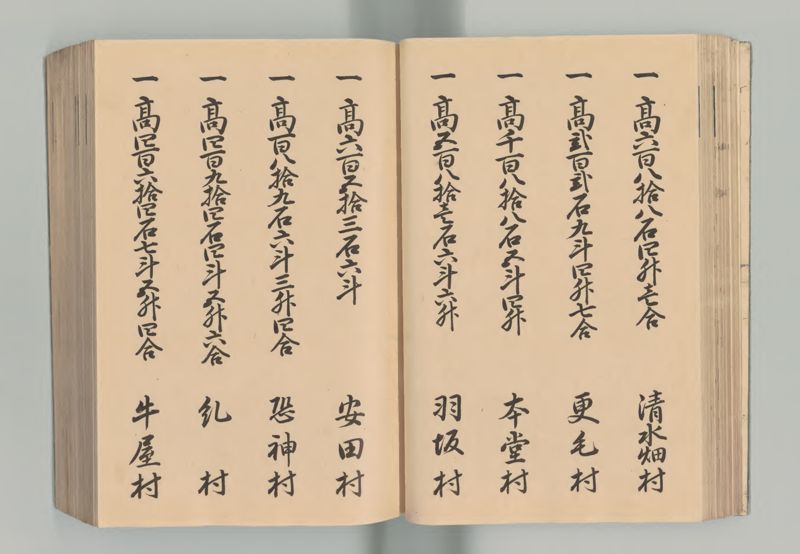 一 高六百八拾八石四升壱合 清水畑村
一 高弐百弐石九斗四升七合 更毛村
一 高千百八拾八石五斗四升 本堂村
一 高五百八拾壱石六斗六升 羽坂村
一 高六百五拾三石六斗 安田村
一 高百八拾九石六斗三升四合 恐神村
一 高四百九拾四石四斗五升六合 糺村
一 高四百六拾四石七斗五升四合 牛屋村